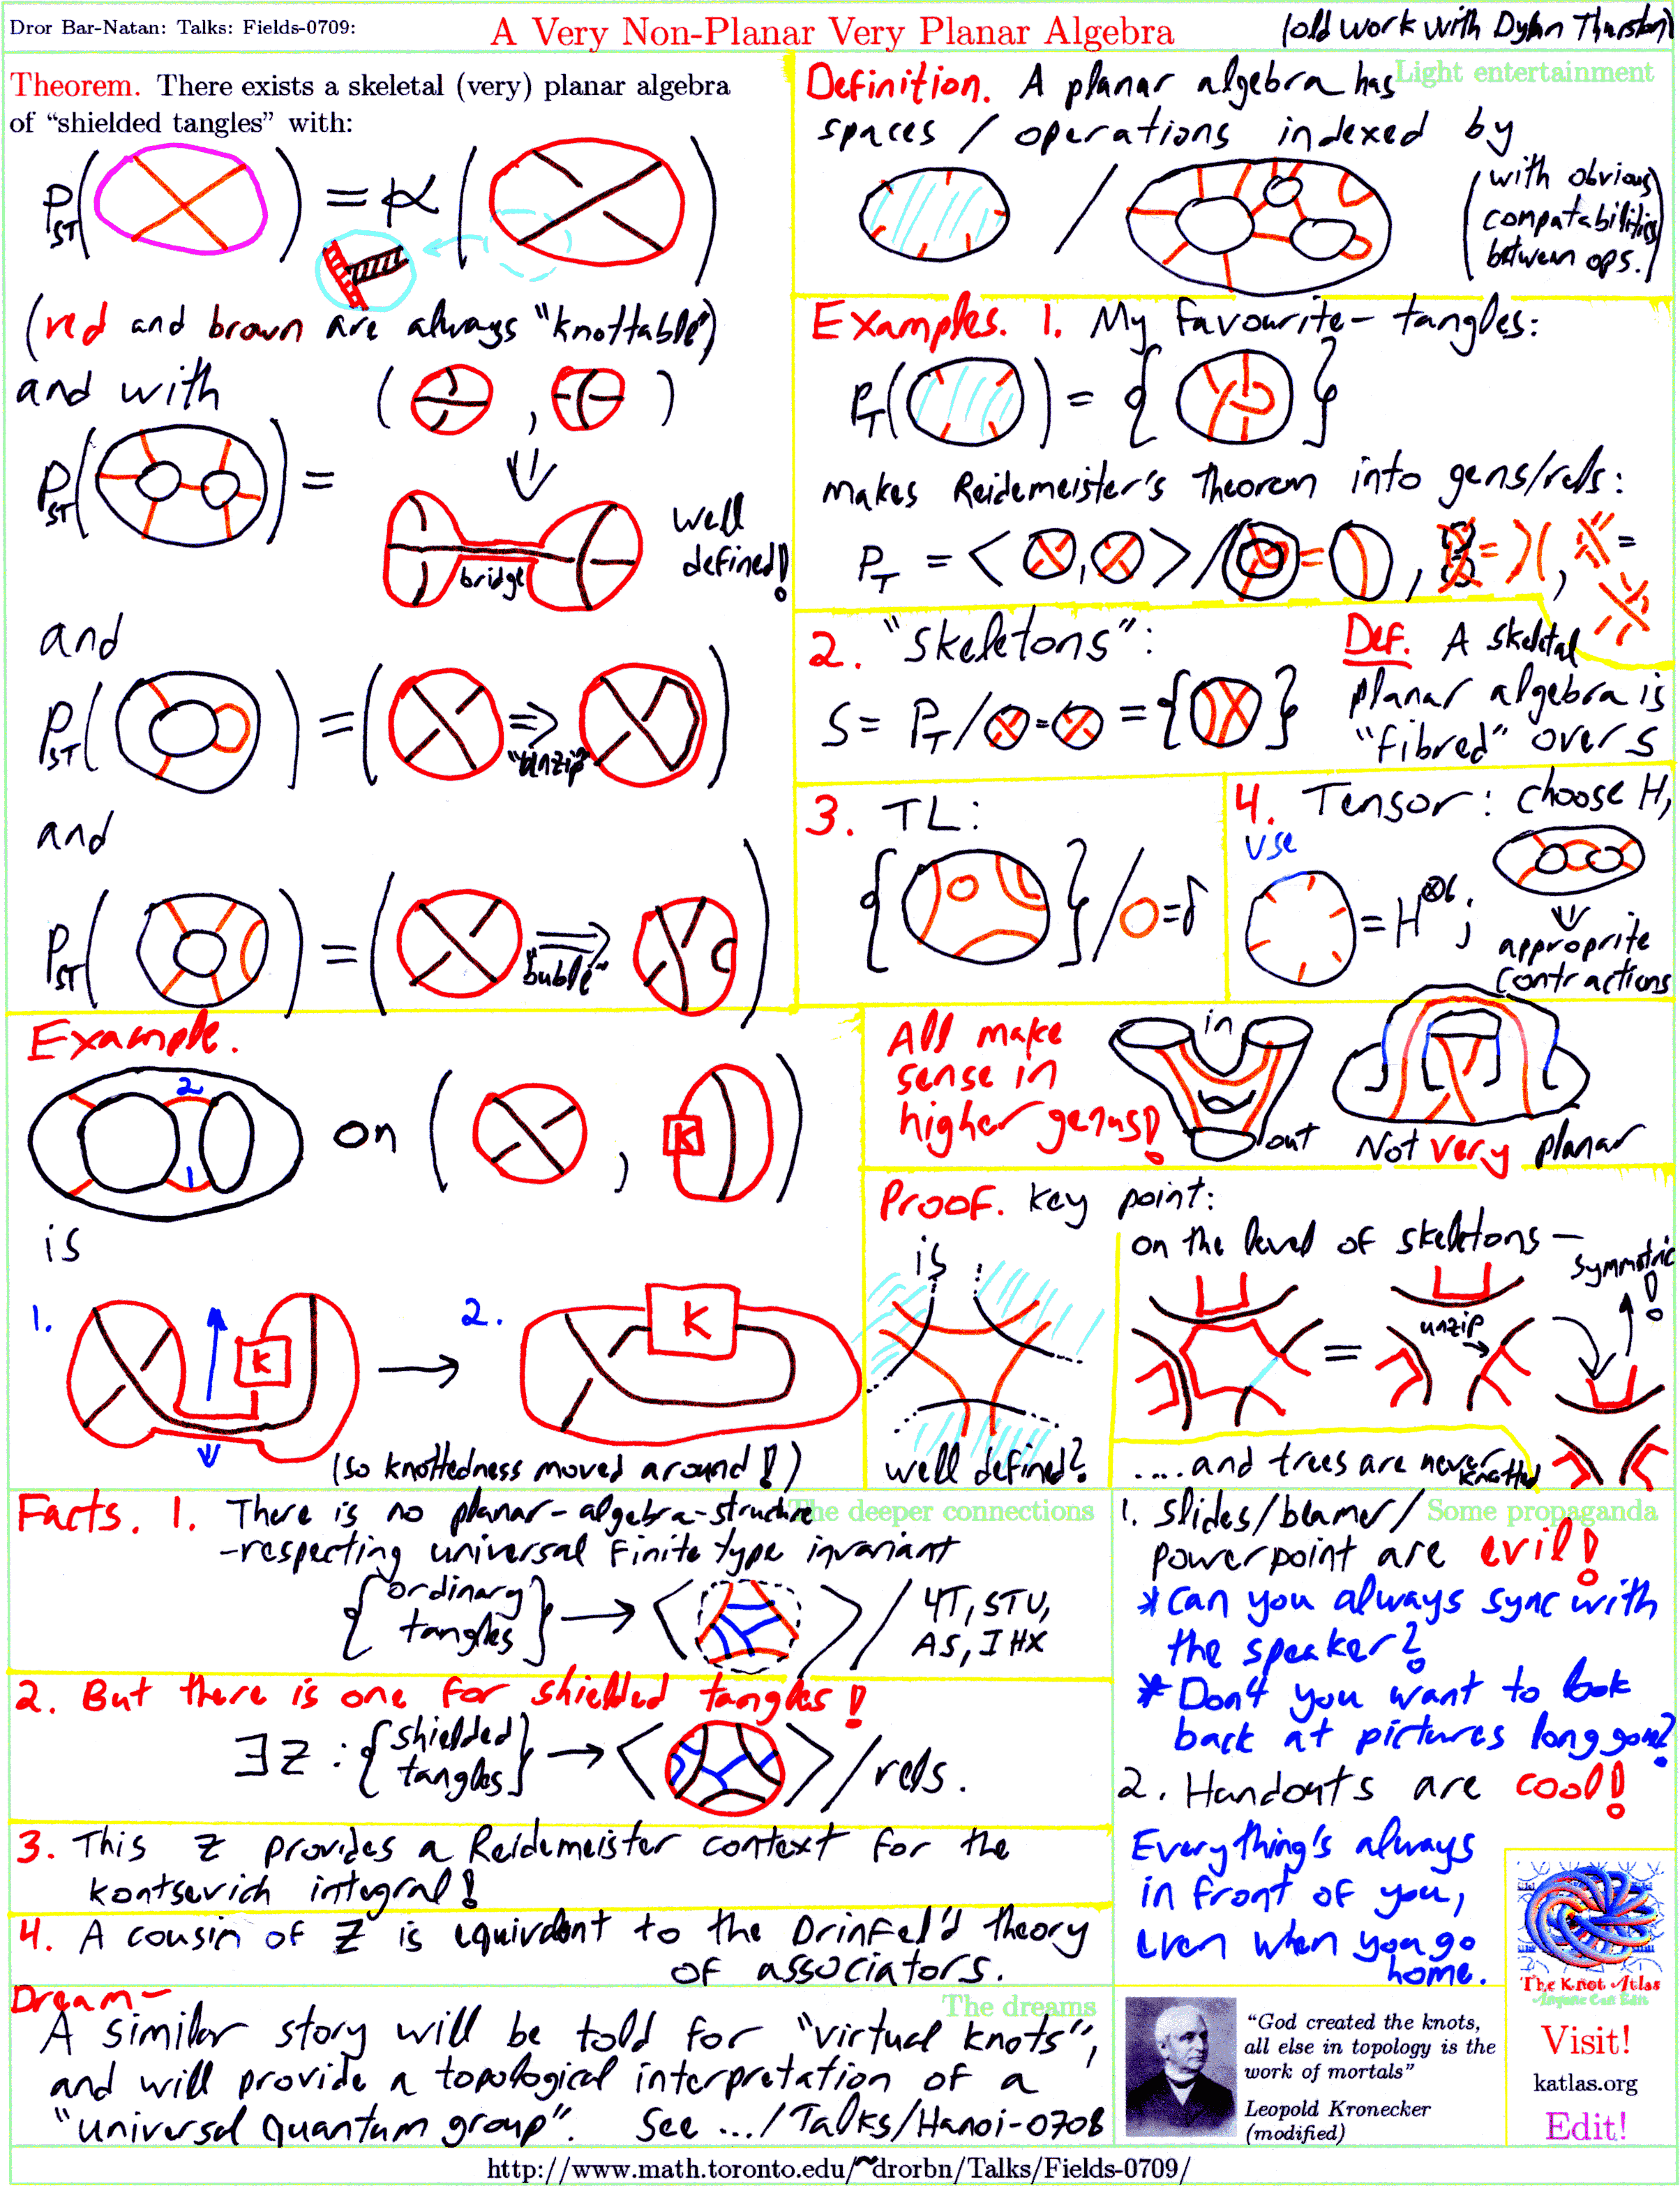 Dror Bar-Natan: Talks: Fields-0709:
A Very Non-Planar Very Planar Algebra
(old work with Dylan Thurston)
Theorem. There exists a skeletal (very) planar algebra
of “shielded tangles” with:
P_ST( ) = ∝ ( )
(red and brown are always "knottable")
and with ( , )
P_ST( ) =
bridge
well
defined!
and
P_ST( ) = ( ⇒ )
"unzip"
and
P_ST( ) = ( ⇒ )
"buble"
Light entertainment
Definition. A planar algebra has
spaces / operations indexed by
(with obvious
compatabilities
between ops.)
/
Examples. 1. My favourite- tangles:
P_T( ) = { }
makes Reidemeister's theorem into gens/rels:
P_T = < , > / = , = , =
2. "skeletons":
S = P_T / = = { }
Def. A skeletal
planar algebra is
"fibred" over S
3. TL:
{ } / = δ
4. Tensor: choose H,
use
= H^⊗6 ;
⇓
approprite
contractions
Example.
2
1
on ( , )
K
is
1.
K
→
2.
K
(so knottedness moved around!)
All make
sense in
higher genus!
in
out
Not very planar
Proof. key point:
is
well defined?
on the level of skeletons -
symmetric
!
unzip
=
....and trees are never knotted
The deeper connections
Facts. 1. There is no planar-algebra-structure
-respecting universal finite type invariant
{ordinary
tangles} → < > / 4T, STU,
AS, IHX
2. But there is one for shielded tangles!
∃Z : {shielded
tangles} → < > /rels.
3. This Z provides a Reidemeister context for the
Kontsevich integral!
4. A cousin of Z is equivalent to the Drinfel'd theory
of associators.
The dreams
Dream-
A similar story will be told for "virtual knots",
and will provide a topological interpretation of a
"universal quantum group". See .../Talks/Hanoi-0708
Some propaganda
1. Slides/beamer/
powerpoint are evil!
* Can you always sync with
the speaker?
* Don't you want to look
back at pictures long gone?
2. Handouts are cool!
Everything's always
in front of you,
even when you go
home.
“God created the knots,
all else in topology is the
work of mortals”
Leopold Kronecker
(modified)
The Knot Atlas
Anyone Can Edit
Visit!
katlas.org
Edit!
http://www.math.toronto.edu/~drorbn/Talks/Fields-0709/